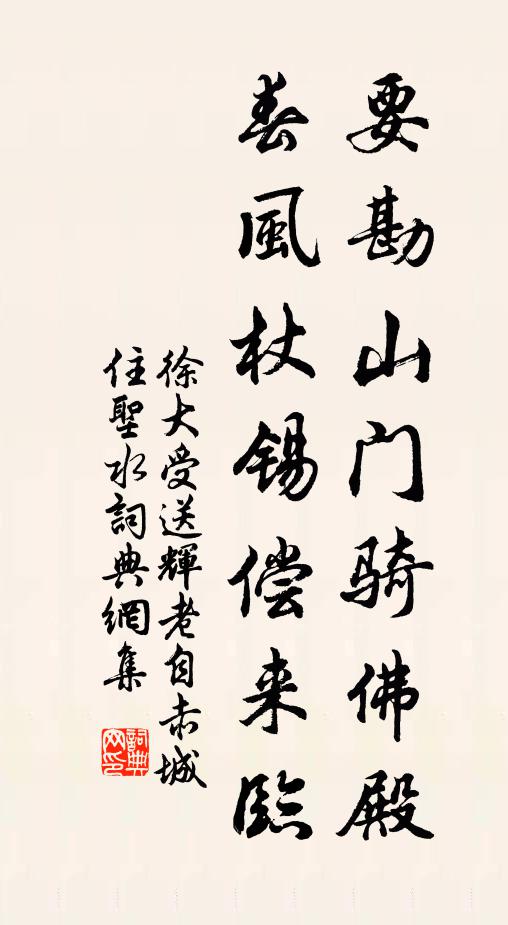 要勘山门骑佛殿
春風杖锡偿来臨
徐大受送輝老自赤城
住聖水詞典網集
詞典网印